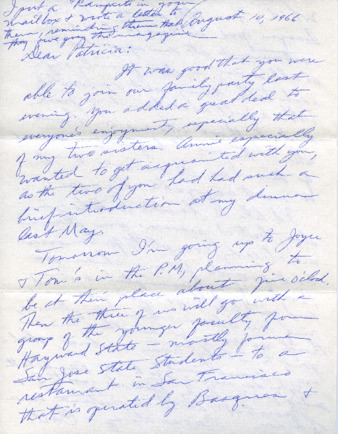 I put a Ramparts in your
mailbox & wrote a letter to
them, reminding them that August 10, 1966
they owe you the magazine
Dear Patricia:
It was good that you were
able to join our family party last
evening. You added a great deal to
everyone's enjoyment, especially that
of my two sisters. Annie especially
wanted to get acquainted with you,
as the two of you had had such a
brief introduction at my dinner
last May.
Tomorrow I'm going up to Joyce
& Tom's in the P.M., planning to
be at their place about five o'clock.
Then the three of us will go with a
group of the younger faculty from
Hayward State – mostly former
San Jose State Students – to a
restaurant in San Francisco
that is operated by Basques &